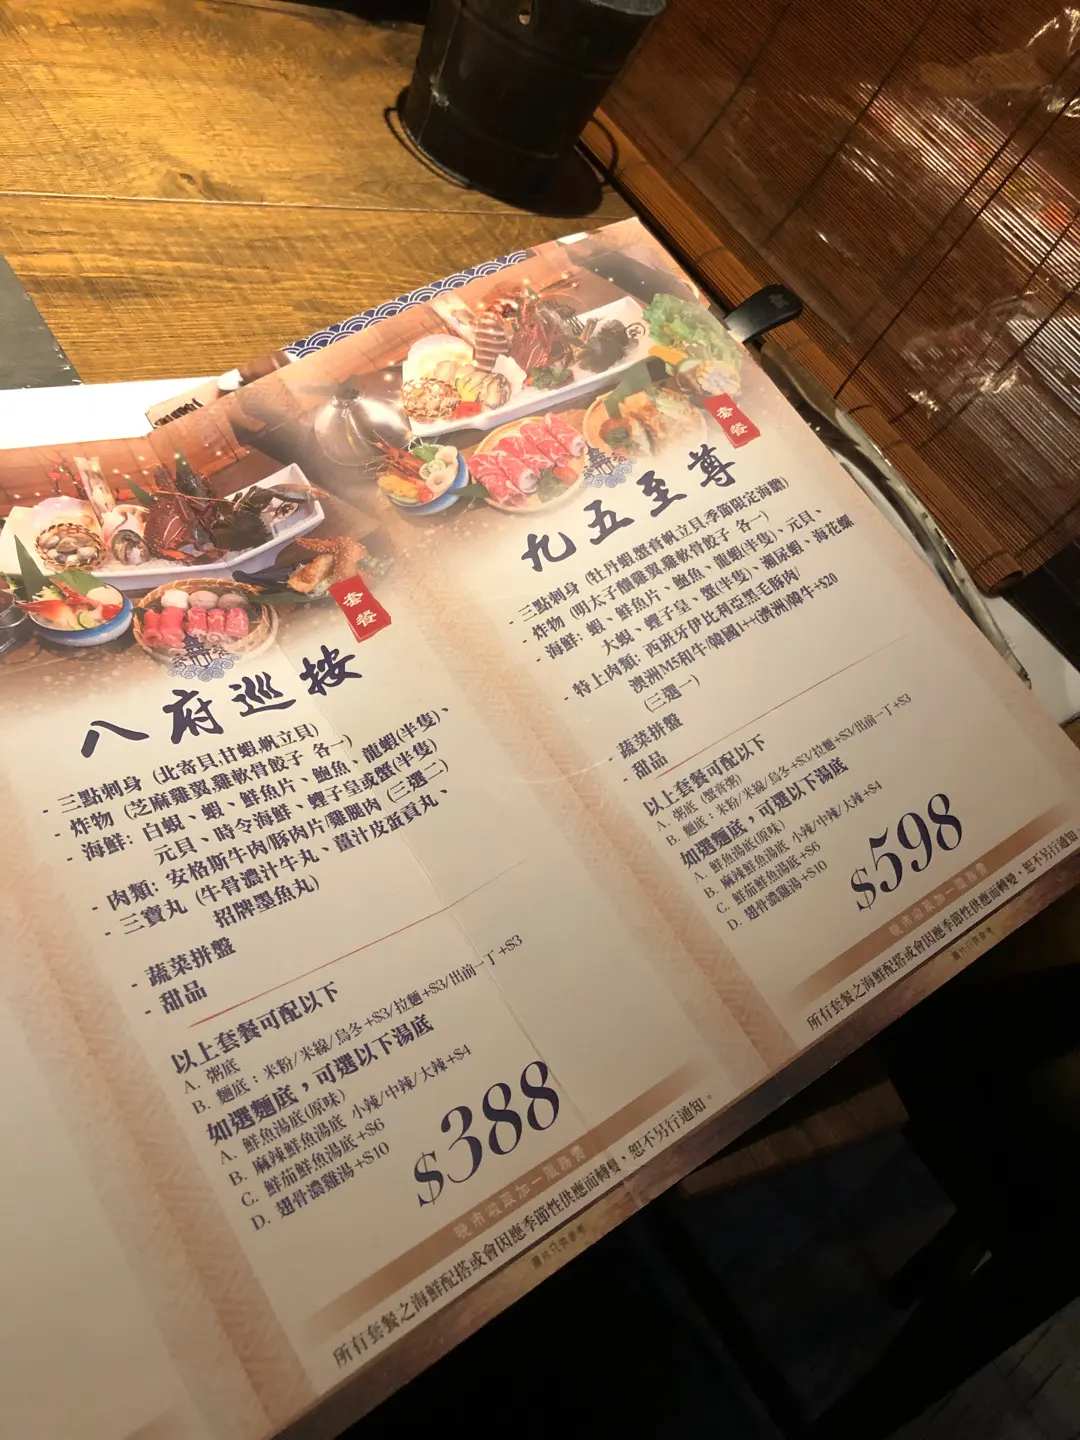 套餐
八府巡按
- 三點刺身 (北寄貝,甘蝦,帆立貝)
- 炸物 (芝麻雞翼,雞軟骨餃子 各一)
- 海鮮: 白蜆、蝦、鮮魚片、鮑魚、龍蝦(半隻)、
元貝、時令海鮮、蟶子皇或蟹(半隻)
- 肉類: 安格斯牛肉/豚肉片/雞腿肉 (三選二)
- 三寶丸 (牛骨濃汁牛丸、薑汁皮蛋貢丸、
招牌墨魚丸)
- 蔬菜拼盤
- 甜品
以上套餐可配以下
A. 粥底
B. 麵底：米粉/米線/烏冬+$3/拉麵+$3/出前一丁+$3
如選麵底，可選以下湯底
A. 鮮魚湯底(原味)
B. 麻辣鮮魚湯底 小辣/中辣/大辣+$4
C. 鮮茄鮮魚湯底+$6
D. 翅骨濃雞湯+$10
$388
晚市收取加一服務費
所有套餐之海鮮配搭或會因應季節性供應而轉變，恕不另行通知。
圖片只供參考
套餐
九五至尊
- 三點刺身 (牡丹蝦,蟹膏帆立貝,季節限定海膽)
- 炸物 (明太子釀雞翼,雞軟骨餃子 各一)
- 海鮮: 蝦、鮮魚片、鮑魚、龍蝦(半隻)、元貝、
大蜆、蟶子皇、蟹(半隻)、瀨尿蝦、海花螺
- 特上肉類: 西班牙伊比利亞黑毛豚肉/
澳洲M5和牛/韓國1++(澳洲)韓牛+$20
(三選一)
- 蔬菜拼盤
- 甜品
以上套餐可配以下
A. 粥底 (蟹膏粥)
B. 麵底：米粉/米線/烏冬+$3/拉麵+$3/出前一丁+$3
如選麵底，可選以下湯底
A. 鮮魚湯底(原味)
B. 麻辣鮮魚湯底 小辣/中辣/大辣+$4
C. 鮮茄鮮魚湯底+$6
D. 翅骨濃雞湯+$10
$598
晚市收取加一服務費
所有套餐之海鮮配搭或會因應季節性供應而轉變，恕不另行通知
圖片只供參考